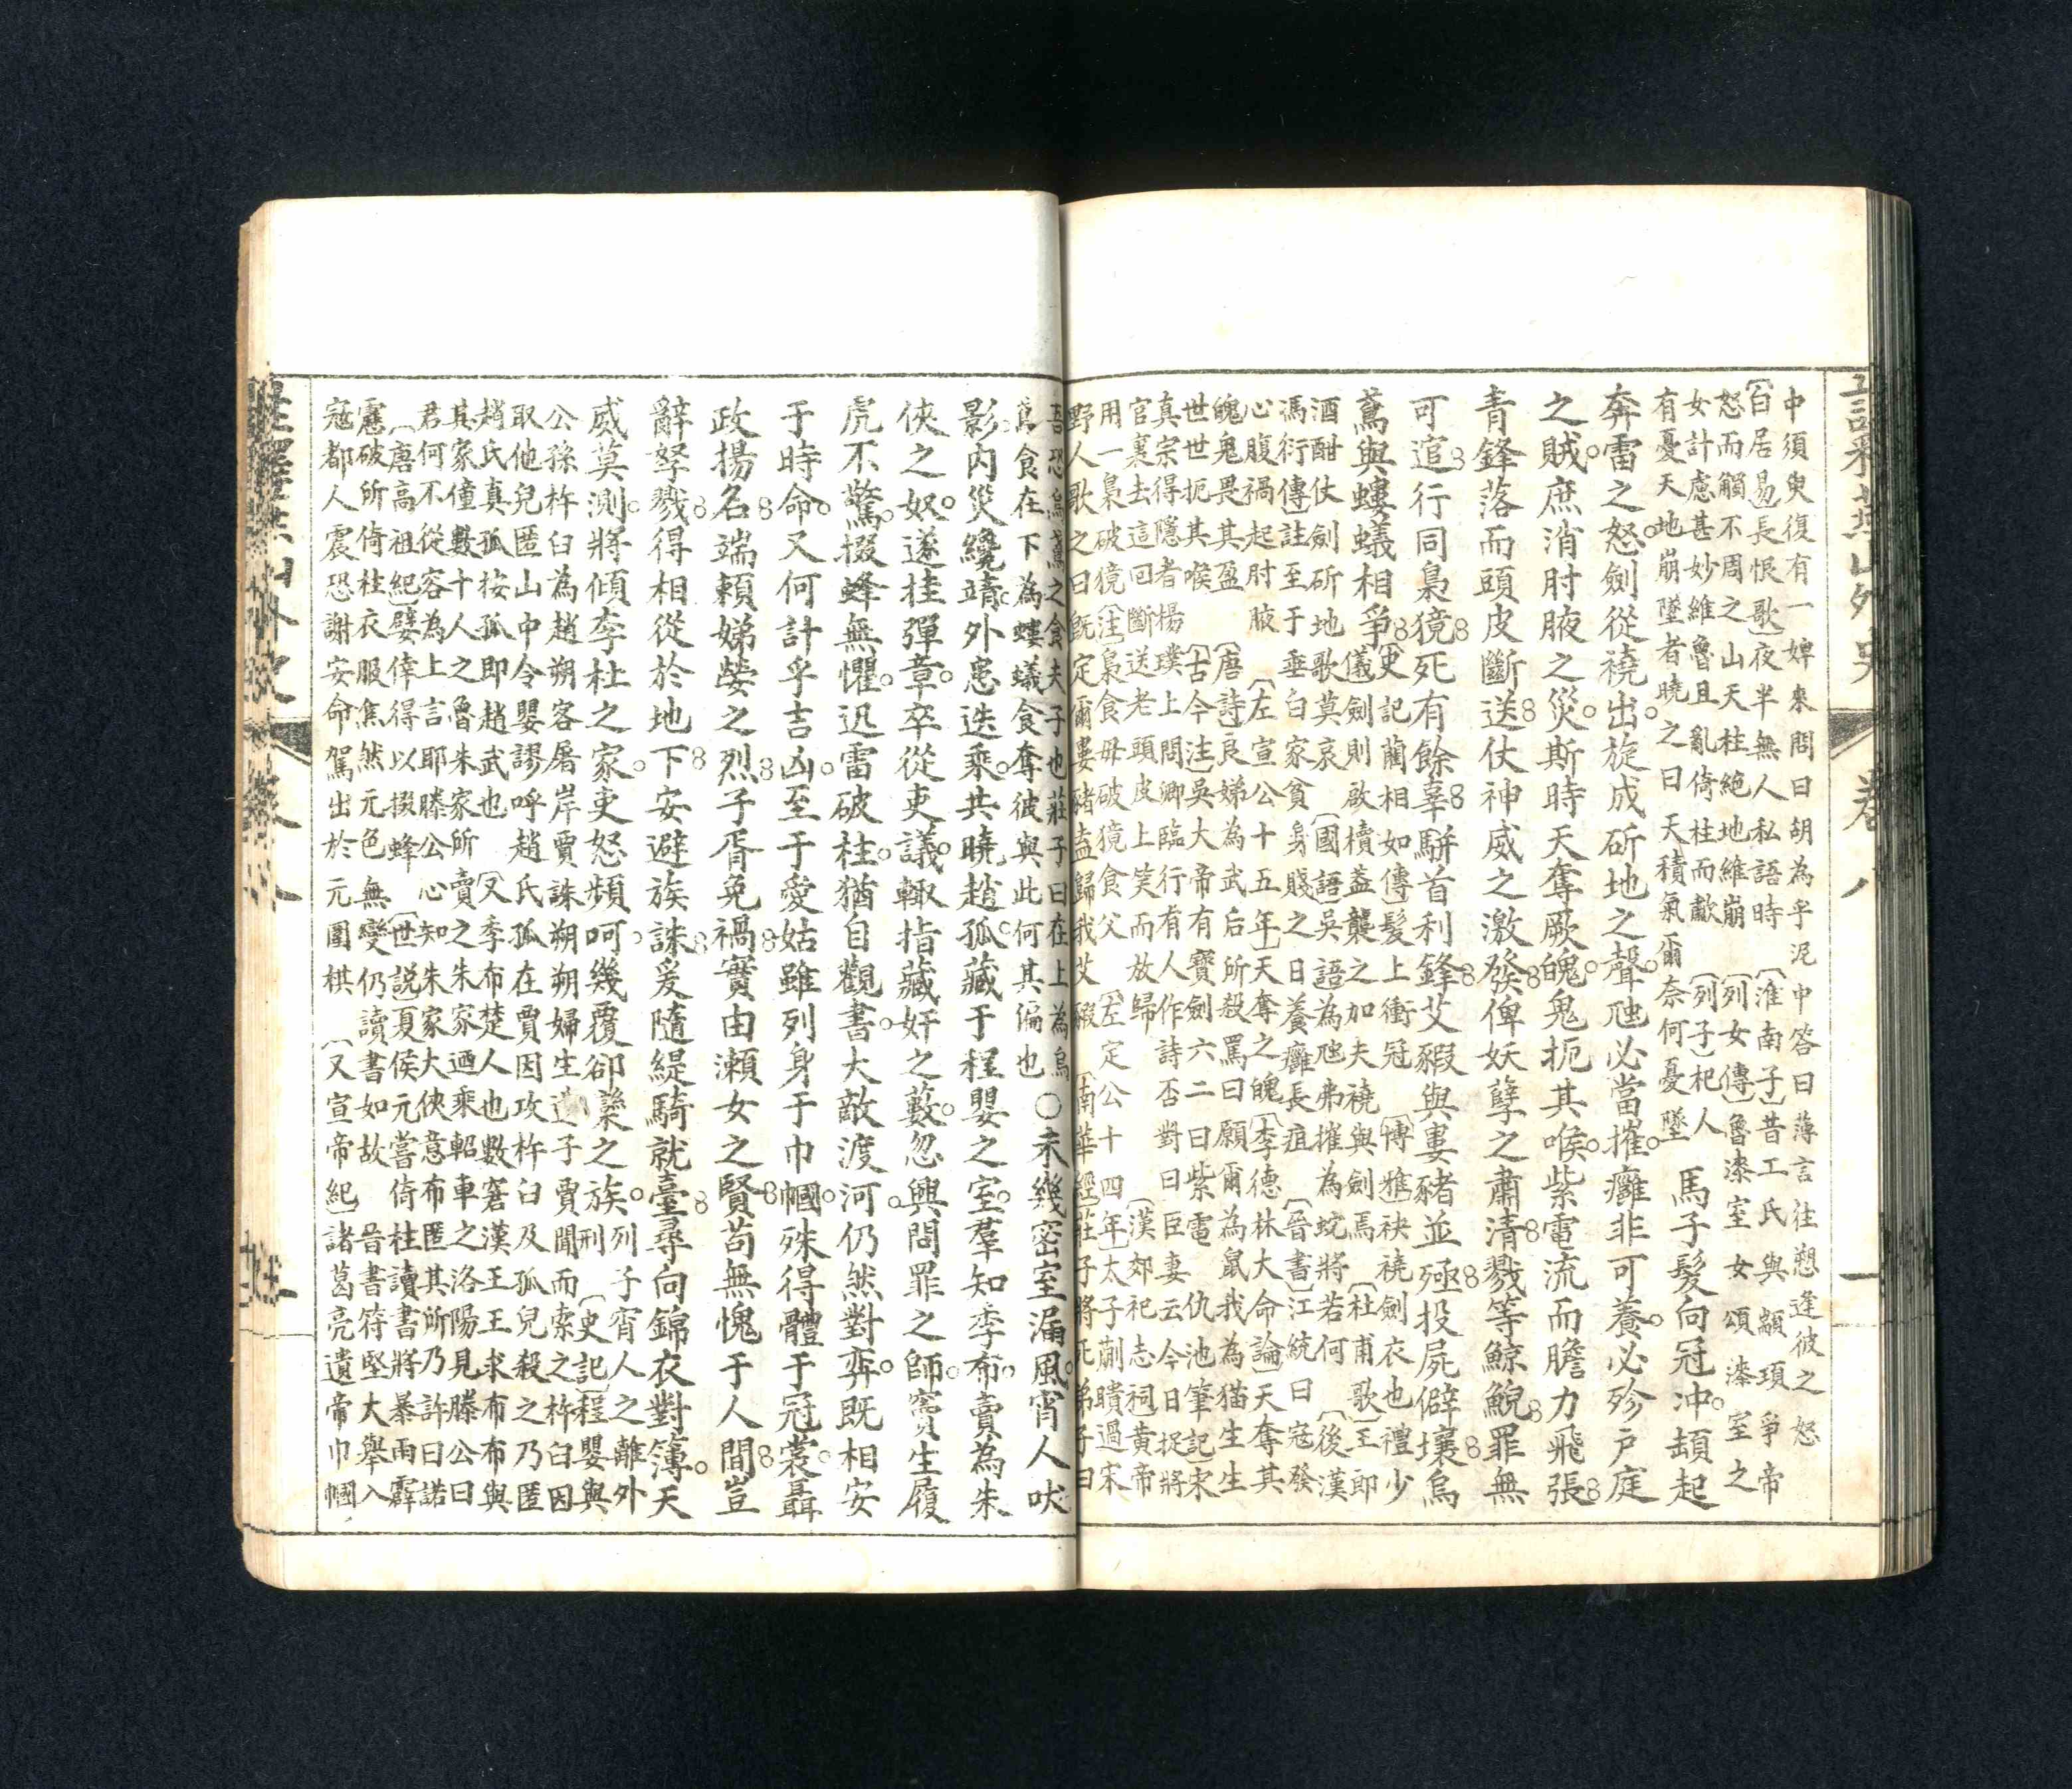 註釋燕山外史 卷八 一
中須臾復有一婢來問曰胡為乎泥中答曰薄言往愬逢彼之怒
〔白居易〕長恨歌〕夜半無人私語時 〔淮南子〕昔工氏與顓頊爭帝
怒而觸不周之山天柱絕地維崩 〔列女傳〕魯漆室女頌漆室之
女計慮甚妙維魯且亂倚柱而歗 〔列子〕杞人
有憂天地崩墜者曉之曰天積氣爾奈何憂墜 馬子髮向冠冲頡起
奔雷之怒。劍從襓出。旋成斫地之聲。虺必當摧。癰非可養。必殄戶庭
之賊。庶消肘腋之災。斯時天奪厥魄。鬼扼其喉。紫電流而膽力飛張
青鋒落而頭皮斷送仗神威之激發俾妖孽之肅清戮等鯨鯢罪無
可逭行同梟獍死有餘辜駢首利鋒艾豭與婁豬並殛投屍僻壤烏
鳶與螻蟻相爭〔史記藺相如傳〕髮上衝冠 〔博雅〕袂襓劍衣也禮少
儀劍則啟櫝蓋襲之加夫襓與劍焉 〔杜甫歌〕王郎
酒酣仗劍斫地歌莫哀 〔國語〕吳語為虺弗摧為蛇將若何 〔後漢
馮衍傳〕註至于垂白家貧身賤之日養癰長疽 〔晉書〕江統曰寇發
心腹禍起肘腋 〔左宣公十五年〕天奪之魄〔李德林大命論〕天奪其
魄鬼畏其盈 〔唐詩〕良娣為武后所殺罵曰願爾為鼠我為猫生生
世世扼其喉 〔古今注〕吳大帝有寶劍六二曰紫電 仇池筆記〕宋
真宗得隱者楊璞上問卿臨行有人作詩否對曰臣妻云今日捉將
官裏去這回斷送老頭皮上笑而放歸 〔漢郊祀志〕祠黃帝
用一梟破獍〔注〕梟食母破獍食父 〔左定公十四年〕太子蒯聵過宋
野人歌之曰既定爾婁豬盍歸我艾豭 〔南華經〕莊子將死弟子曰
吾恐烏鳶之食夫子也莊子曰在上為烏
鳶食在下為螻蟻食奪彼與此何其偏也 ○未幾密室漏風。宵人吠
影。內災纔靖。外患迭乘。共曉趙孤。藏于程嬰之室。羣知季布。賣為朱
俠之奴。遂挂彈章。卒從吏議。輙指藏奸之藪。忽興問罪之師。竇生履
虎不驚。掇蜂無懼。迅雷破柱。猶自觀書。大敵渡河。仍然對弈。既相安
于時命。又何計乎吉凶。至于愛姑雖列身于巾幗。殊得體于冠裳。聶
政揚名端賴娣嫈之烈子胥免禍實由瀨女之賢苟無愧于人間豈
辭孥戮得相從於地下安避族誅爰隨緹騎就臺尋向錦衣對簿。天
威莫測。將傾李杜之家。吏怒頻呵。幾覆郤欒之族。列子宵人之離外
刑 〔史記〕程嬰與
公孫杵臼為趙朔客屠岸賈誅朔朔婦生遺子賈聞而索之杵臼因
取他兒匿山中令嬰謬呼趙氏孤在賈因攻杵臼及孤兒殺之乃匿
趙氏真孤按孤即趙武也 〔又季布楚人也數窘漢王王求布布與
其家僮數十人之魯朱家所賣之朱家迺乘軺車之洛陽見滕公曰
君何不從容為上言耶滕公心知朱家大俠意布匿其所乃許曰諾
〔唐高祖紀〕嬖倖得以掇蜂 〔世説〕夏侯元嘗倚柱讀書將暴雨霹
靂破所倚柱衣服焦然元色無變仍讀書如故 晉書符堅大舉入
寇都人震恐謝安命駕出於元圍棋 〔又宣帝紀〕諸葛亮遺帝巾幗